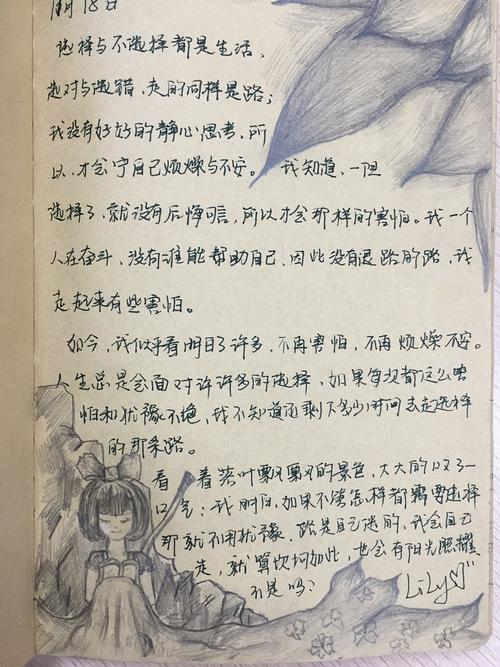 月18日
选择与不选择都是生活,
选对与选错,走的同样是路;
我没有好好的静心思考,所
以,才会宁自己烦燥与不安。 我知道,一旦
选择了,就没有后悔可言,所以才会那样的害怕。我一个
人在奋斗,没有谁能帮助自己,因此没有退路的路,我
走起来有些害怕。
如今,我似乎看明日了许多,不再害怕,不再烦燥不安。
人生总是会面对许许多的选择,如果每次都这么害
怕和犹豫不绝,我不知道还剩下多少时间去走选择
的那条路。
看着落叶飘飘的景色,大大的叹了一
口气:我明白,如果不管怎样都需要选择
那就不用犹豫。路是自己选的,我会自己
走,就算坎坷如此,也会有阳光照耀
不是吗?
LiLy